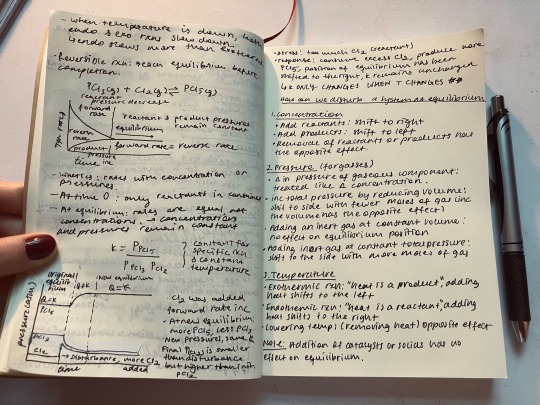 - when temperature is down, both
endo & exo rxns slow down.
↳ endo slows more than exotherm
- Reversible rxn: reach equilibrium before
completion.
PCl3(g) + Cl2(g) ⇌ PCl5(g)
reactant
pressure decrease
forward
rate
reactant & product pressures
remain constant
equilibrium
reverse
rate
forward rate = reverse rate
product
pressure
inc
time
- kinetics: rates with concentration or
pressures.
- At time 0: only reactants in container
- At equilibrium: rates are equal not
concentrations → concentrations
and pressures remain constant
K = PPCl5
PPCl3 PCl2
constant for
specific rxn
@ constant
temperature
original
equilib
rium
new equilibrium
Q=K
Q=K
PCl5
PCl3
Cl2
pressure (atm)
time
Disturbance, more Cl2
added
Cl2 was added
forward rate inc
- At new equilibrium:
more PCl5, less PCl3
New pressure, same K
Final PCl2 is smaller
than disturbance
but higher than init
PCl2
• stress: too much Cl2 (reactant)
• response: consume excess Cl2, produce more
PCl5, position of equilibrium has been
shifted to the right, K remains unchanged
↳ K ONLY CHANGES WHEN T CHANGES
How can we disturb a system at equilibrium
1. Concentration
• Add reactants: shift to right
• Add products: shift to left
• Removal of reactants or products has
the opposite effect.
2. Pressure (for gasses)
• Δ in pressure of gaseous component:
treated like Δ concentration.
• inc total pressure by reducing volume:
shift to side with fewer moles of gas (inc
the volume has the opposite effect)
• Adding an inert gas at constant volume:
no effect on equilibrium position
• Adding inert gas at constant total pressure:
shift to the side with more moles of gas
3. Temperature
• Exothermic rxn: "heat is a product", adding
heat shifts to the left
• Endothermic rxn: "heat is a reactant", adding
heat shifts to the right
• Lowering temp: (removing heat) opposite effect
Note: Addition of catalysts or solids has no
effect on equilibrium.